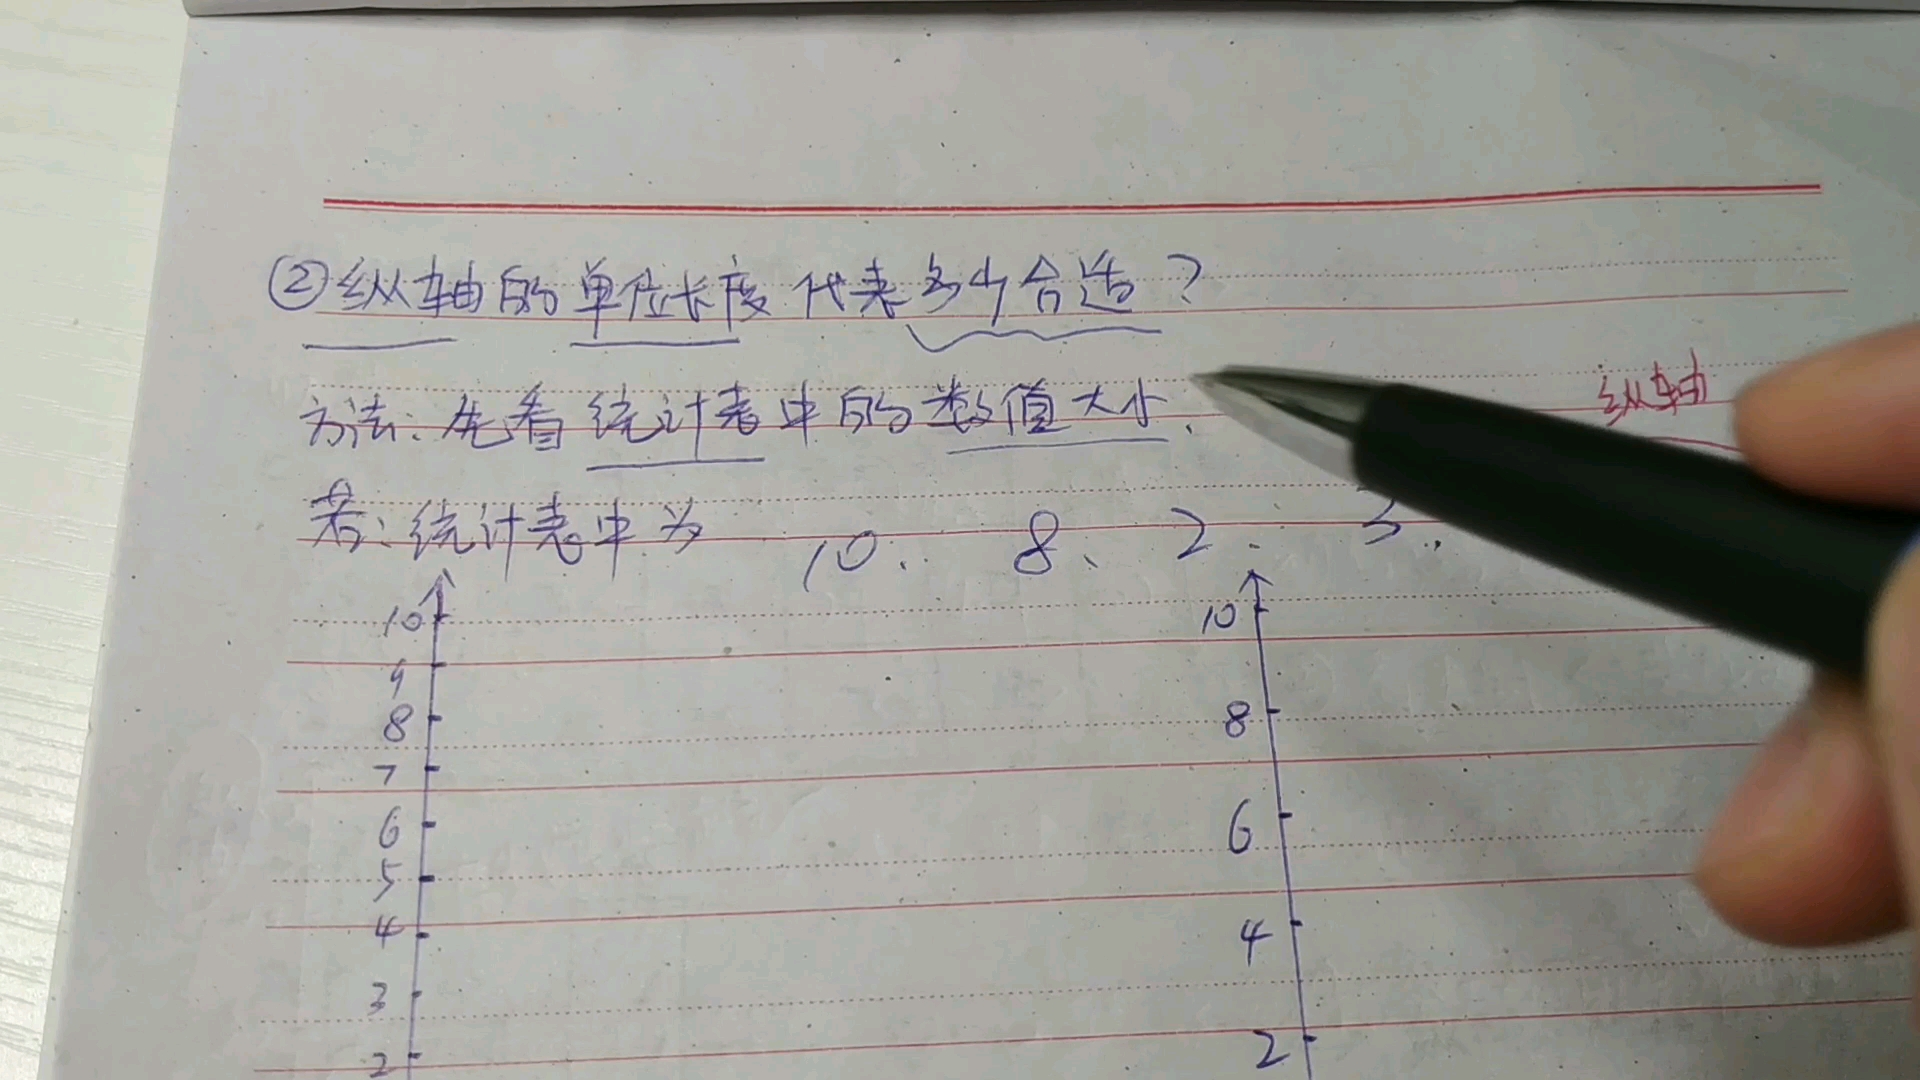 ②纵轴的单位长度代表多少合适？
方法：先看统计表中的数值大小.
纵轴
若：统计表中为 10、 8、 2、 3、
10
9
8
7
6
5
4
3
2
10
8
6
4
2